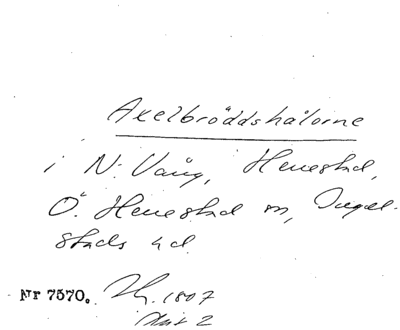 Axelbröddshålorne
i N. Vång, Henestad,
Ö. Henestad sn, Ingel-
stads hd
Nr 7570. 1807
2